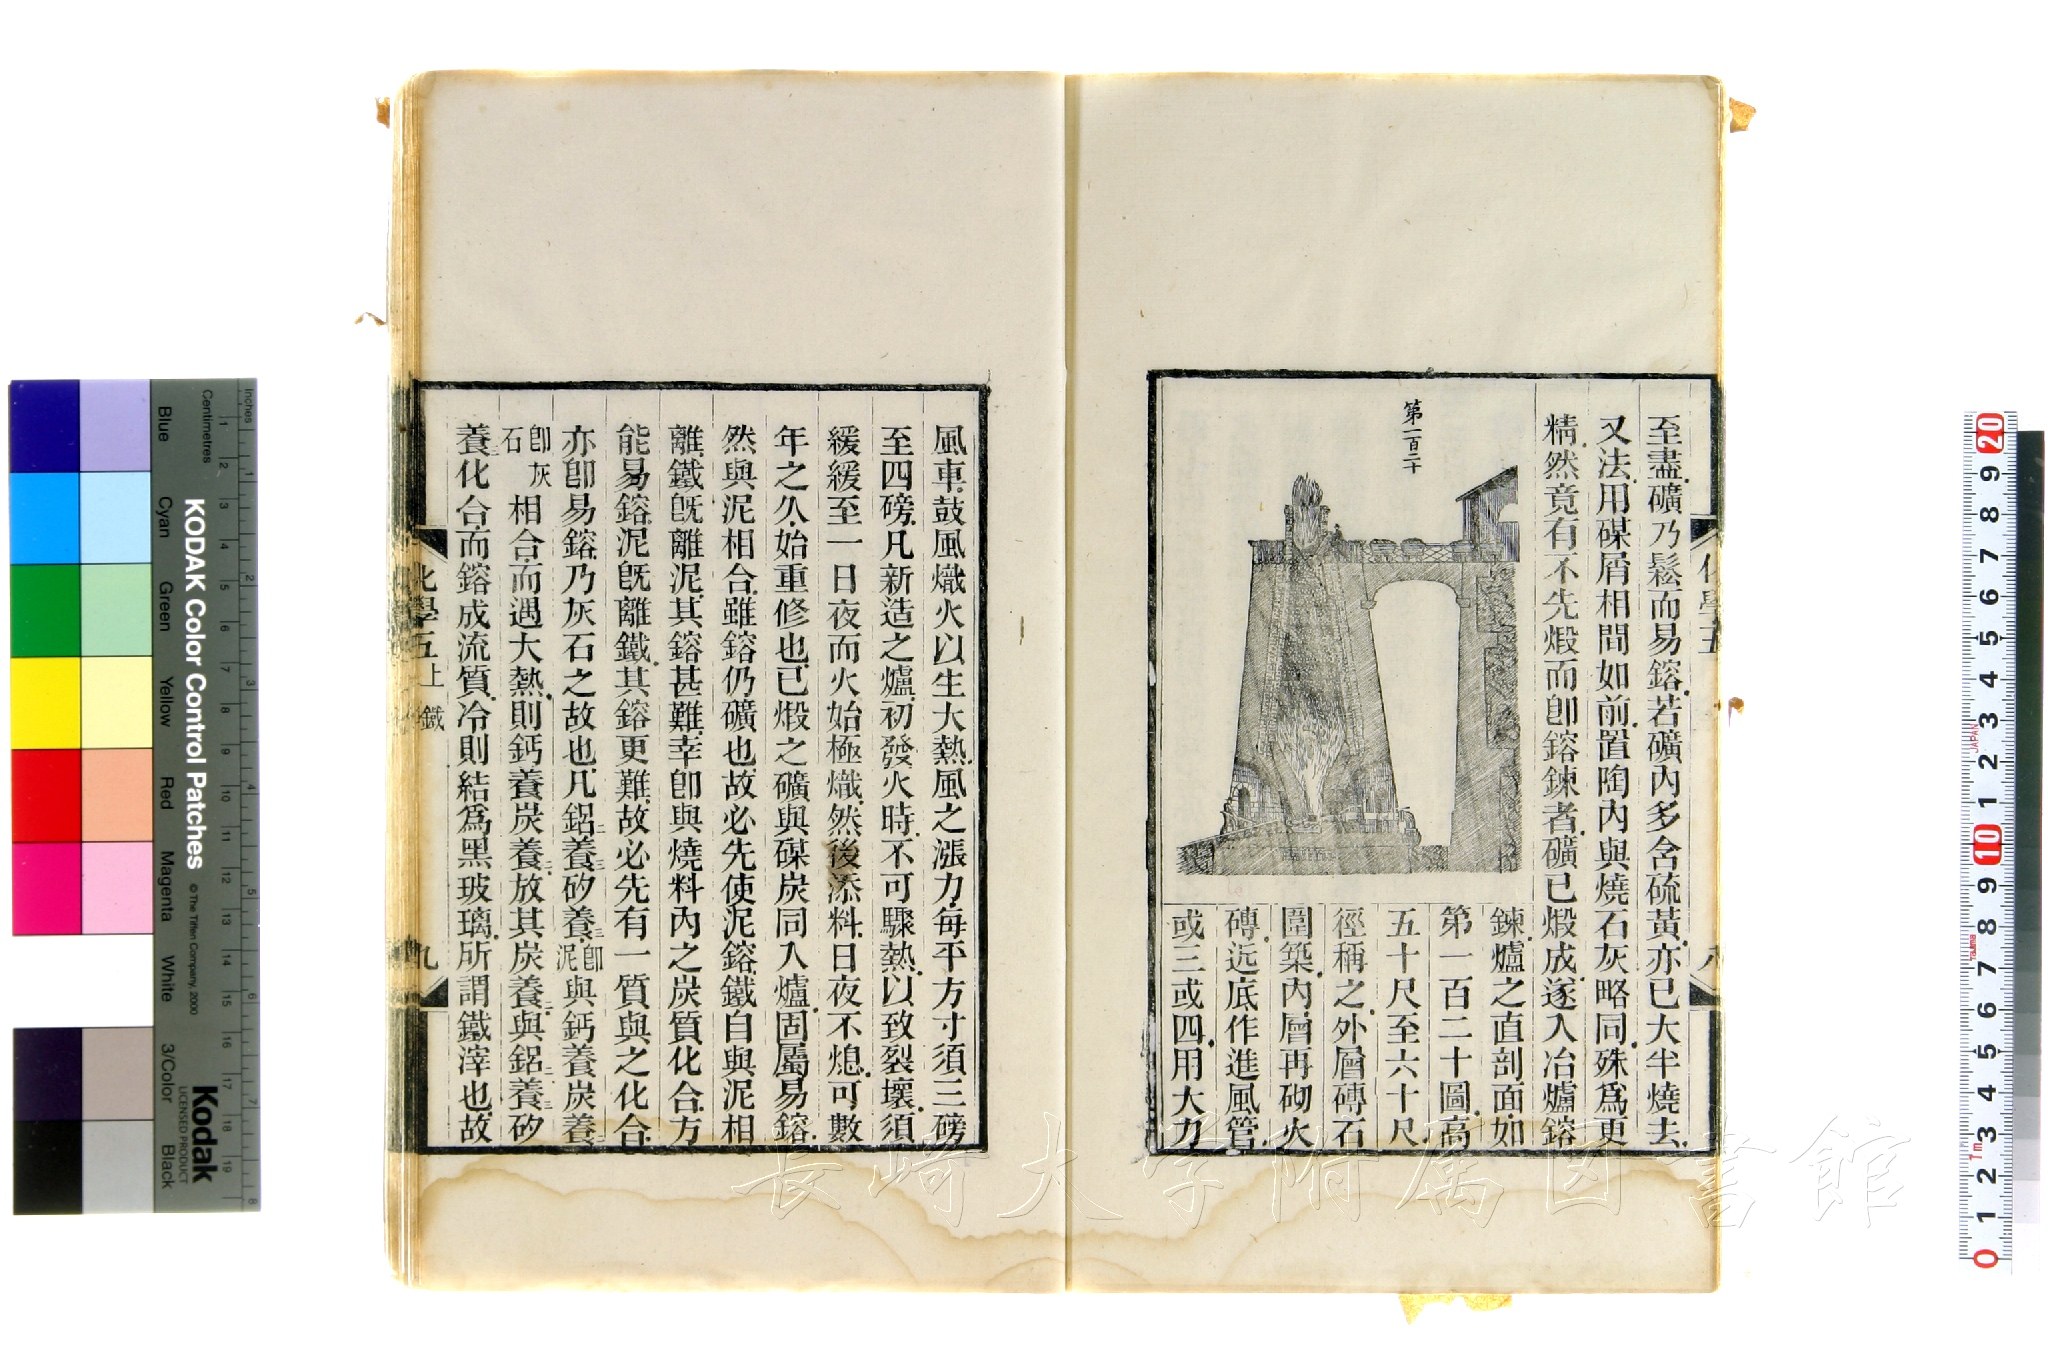 至盡礦乃鬆而易鎔若礦內多含硫黃亦已大半燒去
又法用煤屑相間如前置陶內與燒石灰略同殊為更
精然竟有不先煅而卽鎔鍊者礦已煅成遂入冶爐鎔
第一百二十
鍊爐之直剖面如
第一百二十圖高
五十尺至六十尺
徑稱之外層磚石
圍築內層再砌火
磚近底作進風管
或三或四用大力
風車鼓風熾火以生大熱風之漲力每平方寸須三磅
至四磅凡新造之爐初發火時不可驟熱以致裂壞須
緩緩至一日夜而火始極熾然後添料日夜不熄可數
年之久始重修也已煅之礦與煤炭同入爐固屬易鎔
然與泥相合雖鎔仍礦也故必先使泥鎔鐵自與泥相
離鐵旣離泥其鎔甚難幸卽與燒料內之炭質化合方
能易鎔泥旣離鐵其鎔更難故必先有一質與之化合
亦卽易鎔乃灰石之故也凡鋁二養三矽養三卽泥與鈣養炭養二
卽灰石相合而遇大熱則鈣養炭養二放其炭養二與鋁二養三矽
養三化合而鎔成流質冷則結為黑玻璃所謂鐵滓也故
化學五上 鐵
九
KODAK Color Control Patches
© The Tiffen Company, 2000
Kodak
LICENSED PRODUCT
Blue
Cyan
Green
Yellow
Red
Magenta
White
3/Color
Black
Inches
Centimetres
1 2 3 4 5 6 7 8 9 10 11 12 13 14 15 16 17 18 19
1 2 3 4 5 6 7 8
20 9 8 7 6 5 4 3 2 1 10 9 8 7 6 5 4 3 2 1 0
JAPAN
1m
長崎大学附属図書館